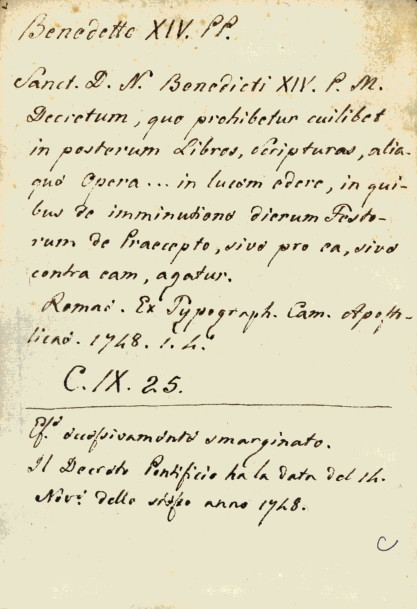 Benedetto XIV. PP.
Sanct. D. N. Benedicti XIV. P. M.
Decretum, quo prohibetur cuilibet
in posterum Libros, Scripturas, alia-
que Opera... in lucem edere, in qui-
bus de imminutione dierum Festo-
rum de Praecepto, sive pro ea, sive
contra eam, agatur.
Romae. Ex Typograph. Cam. Aposto-
licae. 1748. in 4.º
C. IX. 25.
Es.º eccessivamente smarginato.
Il Decreto Pontificio ha la data del 14.
Nov.e dello stesso anno 1748.
C